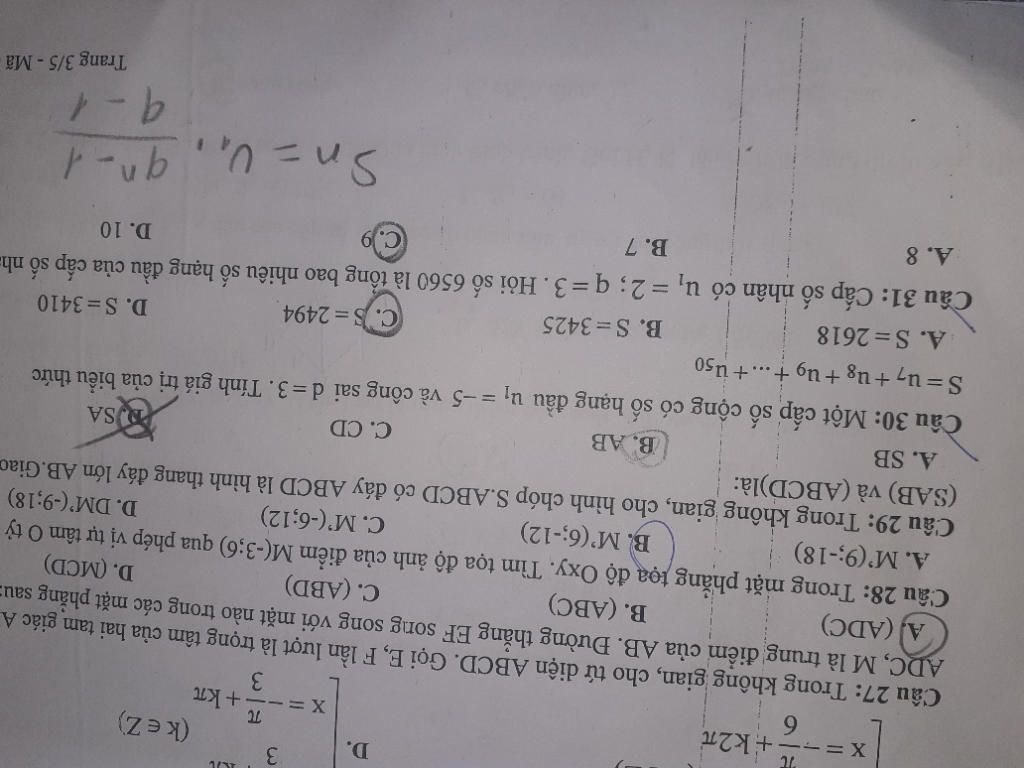 x = −π/6 + k2π
D. x = −π/3 + kπ (k ∈ Z)
Câu 27: Trong không gian, cho tứ diện ABCD. Gọi E, F lần lượt là trọng tâm của hai tam giác
ADC, M là trung điểm của AB. Đường thẳng EF song song với mặt nào trong các mặt phẳng sau:
A. (ADC) B. (ABC) C. (ABD) D. (MCD)
Câu 28: Trong mặt phẳng tọa độ Oxy. Tìm tọa độ ảnh của điểm M(-3;6) qua phép vị tự tâm O tỷ
A. M'(9;-18) B. M'(6;-12) C. M'(-6;12) D. DM'(-9;18)
Câu 29: Trong không gian, cho hình chóp S.ABCD có đáy ABCD là hình thang đáy lớn AB.Giao
(SAB) và (ABCD)là:
A. SB B. AB C. CD D. SA
Câu 30: Một cấp số cộng có số hạng đầu u₁ = −5 và công sai d = 3. Tính giá trị của biểu thức
S = u₇ + u₈ + u₉ + ... + u₅₀
A. S = 2618 B. S = 3425 C. S = 2494 D. S = 3410
Câu 31: Cấp số nhân có u₁ = 2; q = 3. Hỏi số 6560 là tổng bao nhiêu số hạng đầu của cấp số
A. 8 B. 7 C. 9 D. 10
Sn = U₁. (qⁿ − 1)/(q − 1)
Trang 3/5 - Mã